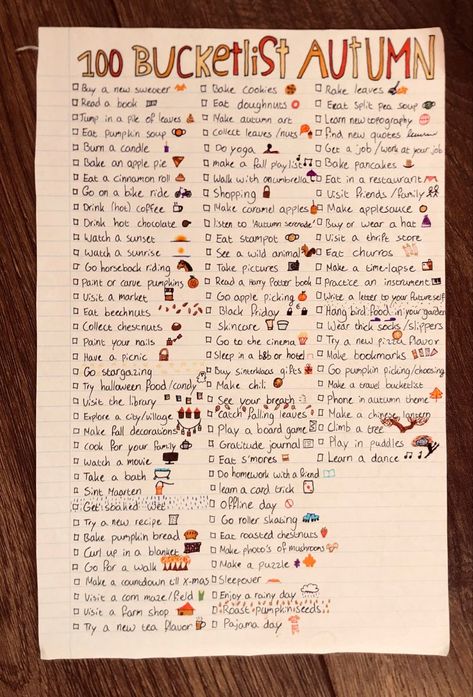 100 BUCKETLIST AUTUMN
Buy a new sweater
Read a book
Jump in a pile of leaves
Eat pumpkin soup
Burn a candle
Bake an apple pie
Eat a cinnamon roll
Go on a bike ride
Drink (hot) coffee
Drink hot chocolate
Watch a sunset
Watch a sunrise
Go horseback riding
Paint or carve pumpkins
Visit a market
Eat beechnuts
Collect chestnuts
Paint your nails
Have a picnic
Go stargazing
Try halloween food/candy
Visit the library
Explore a city/village
Make fall decorations
Cook for your family
Watch a movie
Take a bath
Sint Maarten
Get soaked wet
Try a new recipe
Bake pumpkin bread
Curl up in a blanket
Go for a walk
Make a countdown till X-mas
Visit a corn maze/field
Visit a farm shop
Try a new tea flavor
Bake cookies
Eat doughnuts
Make autumn art
Collect leaves/nuts
Do yoga
make a fall playlist
Walk with an umbrella
Shopping
Make caramel apples
listen to 'Autumn serenade'
Eat stampot
See a wild animal
Take pictures
Read a Harry Potter book
Go apple picking
Black Friday
Skincare
Go to the cinema
Sleep in a b&b or hotel
Buy sinterklaas gifts
Make chili
See your breath
Catch falling leaves
Play a board game
Gratitude journal
Eat s'mores
Do homework with a friend
learn a card trick
Offline day
Go roller skating
Eat roasted chestnuts
Make photo's of mushrooms
Make a puzzle
Sleepover
Enjoy a rainy day
Roast pumpkinseeds
Pajama day
Rake leaves
Eeat Split pea soup
Learn new topography
find new quotes
Get a job / work at your job
Bake pancakes
Eat in a restaurant
Visit friends / family
Make applesauce
Buy or wear a hat
Visit a thrift store
Eat churros
Make a time-lapse
Practice an instrument
Write a letter to your future self
Hang bird food in your garden
Wear thick socks / slippers
Try a new pizza flavor
Make bookmarks
Go pumpkin picking/choosing
Make a travel bucketlist
Phone in autumn theme
Make a chinese lantern
Climb a tree
Play in puddles
Learn a dance